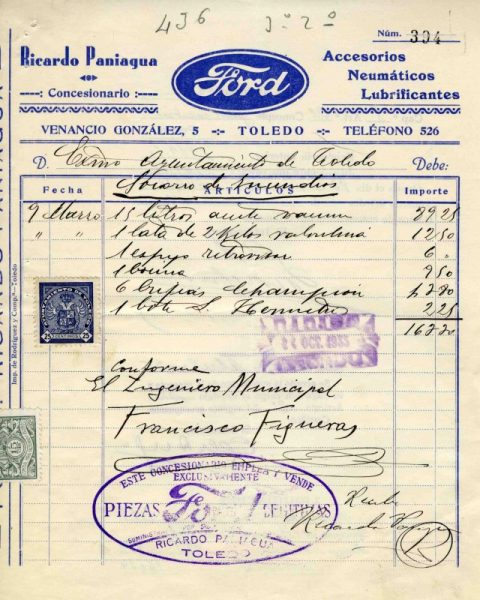 436 3º 2º
Núm. 394
Ricardo Paniagua
Concesionario
Ford
Accesorios
Neumáticos
Lubrificantes
VENANCIO GONZÁLEZ, 5 -:- TOLEDO -:- TELÉFONO 526
D. Excmo Ayuntamiento de Toledo Debe:
Fecha ARTÍCULOS Importe
9 Marzo 15 litros aceite 29 25
" " 1 lata de 2 kilos valvulina 12 50
1 espejo retrovisor 6 "
1 bocina 9 50
6 bujias Champion
1 bote 2 25
25 CENTIMOS 25
OCT. 1935
Conforme
El Ingeniero Municipal
Francisco Figueras
ESTE CONCESIONARIO EMPLEA Y VENDE
EXCLUSIVAMENTE
PIEZAS Ford LEGITIMAS
RICARDO PANIAGUA
TOLEDO
Recibí
Imp. de Rodríguez y Comp.ª-Toledo